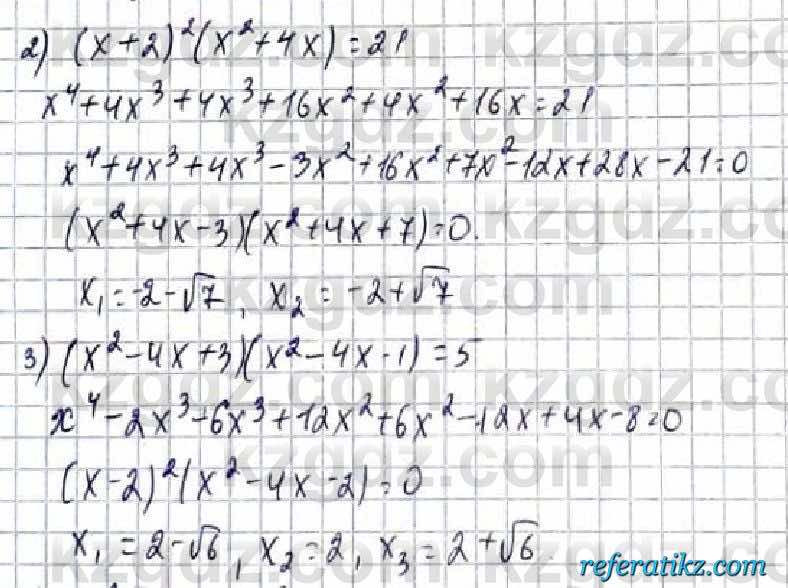 2) (x+2)²(x²+4x)=21
x⁴+4x³+4x³+16x²+4x²+16x=21
x⁴+4x³+4x³-3x²+16x²+7x²-12x+28x-21=0
(x²+4x-3)(x²+4x+7)=0.
x₁=-2-√7, x₂=-2+√7
3) (x²-4x+3)(x²-4x-1)=5
x⁴-2x³-6x³+12x²+6x²-12x+4x-8=0
(x-2)²(x²-4x-2)=0
x₁=2-√6, x₂=2, x₃=2+√6.
referatikz.com